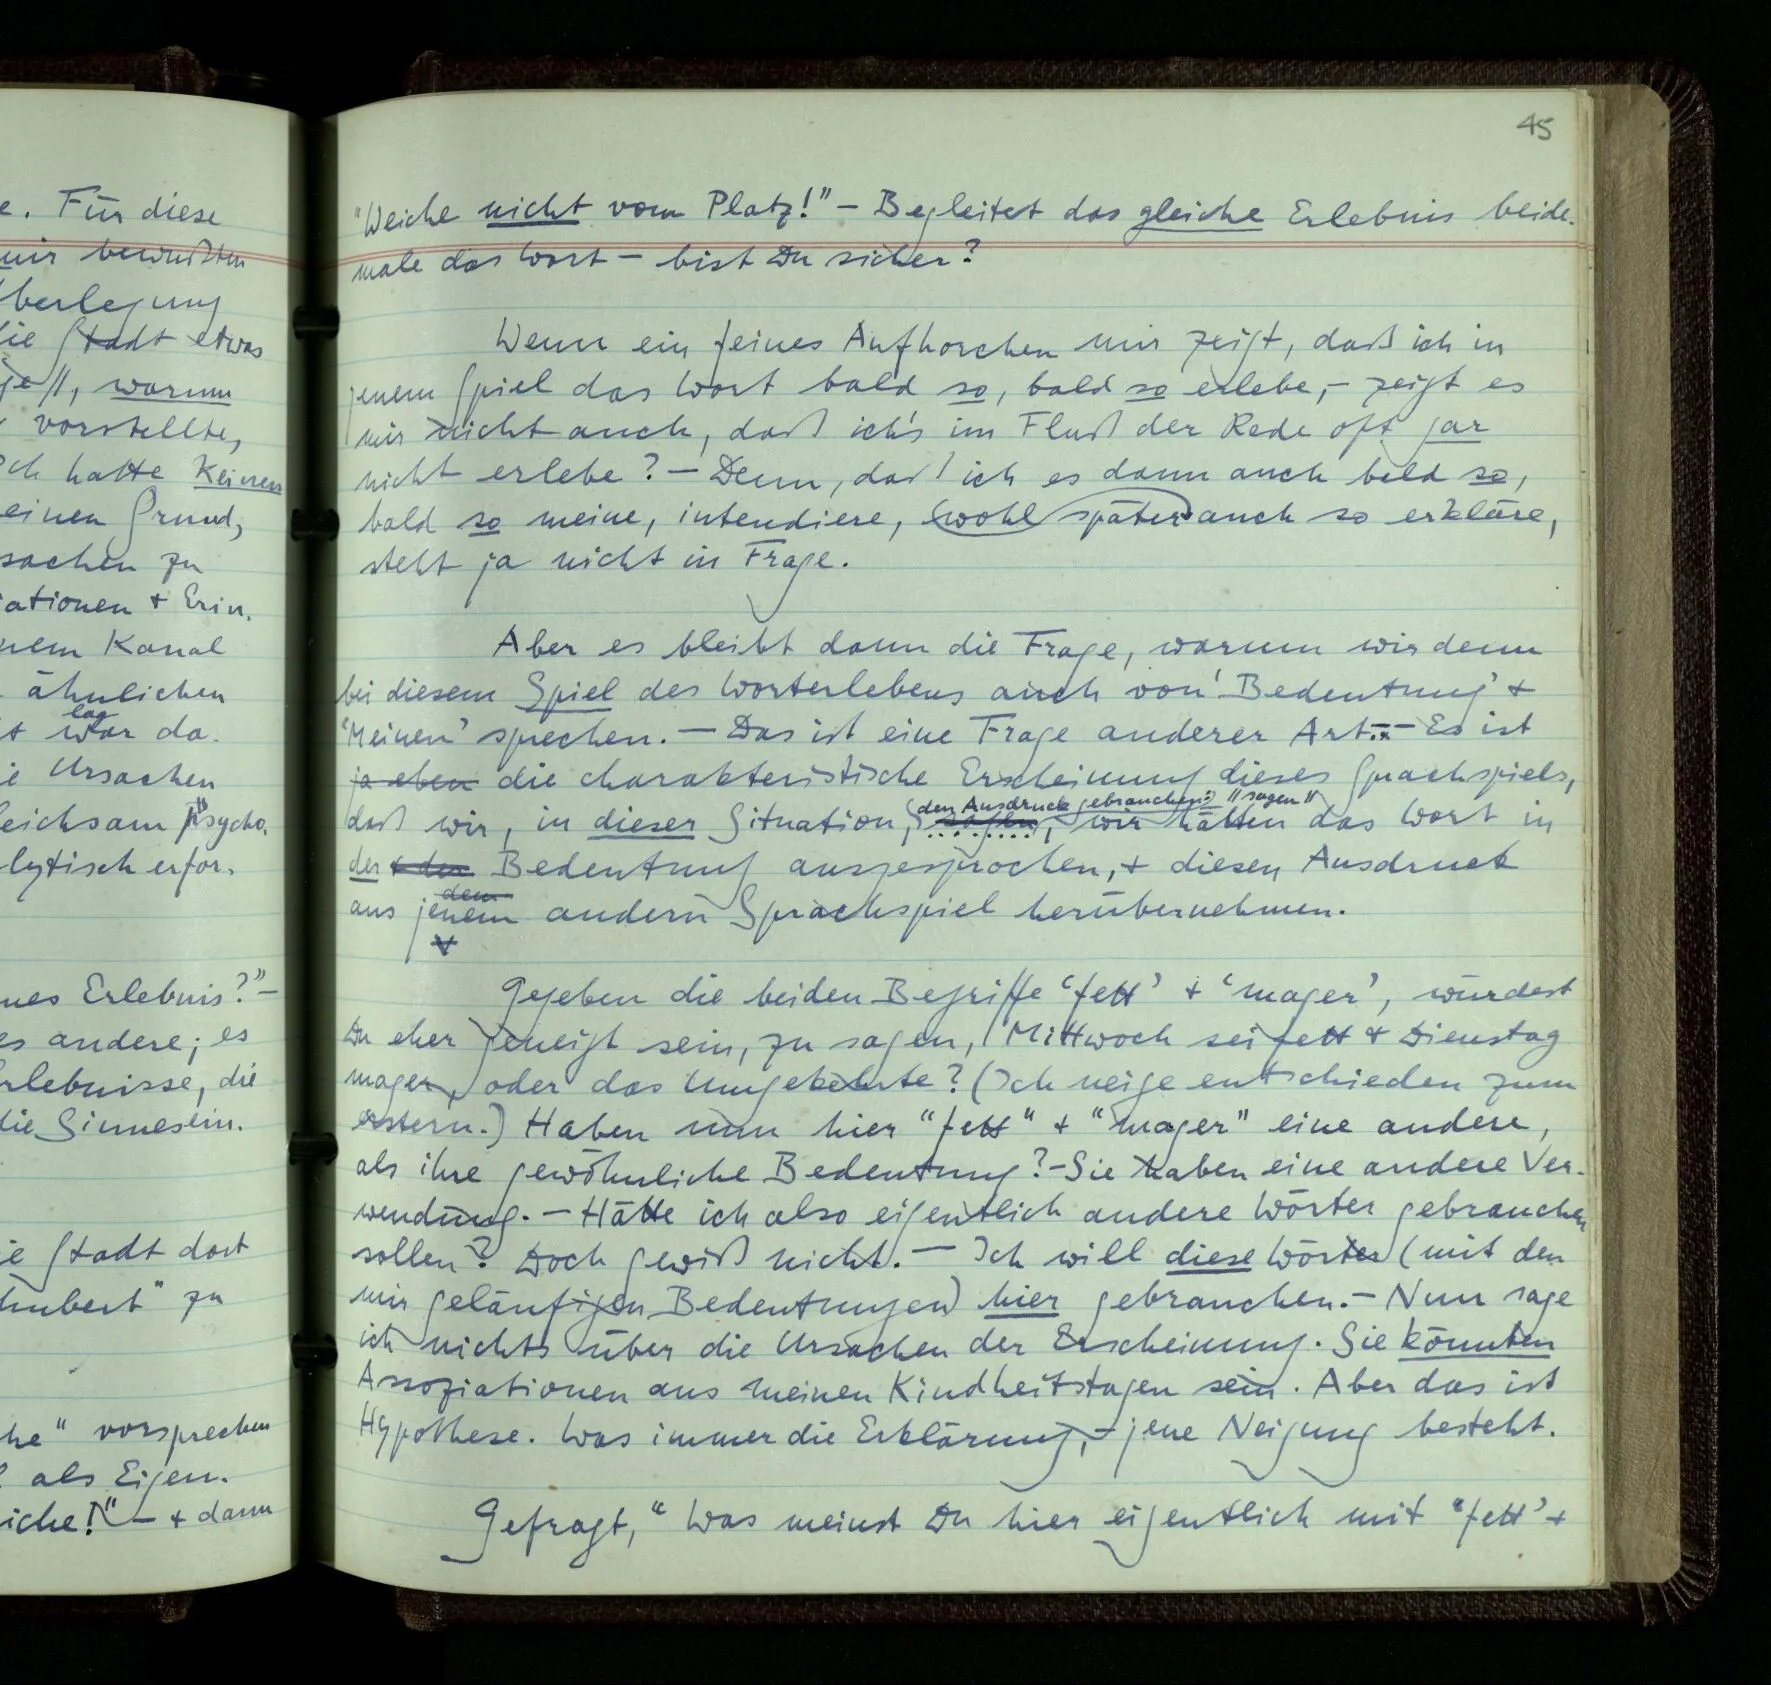 e. Für diese
mir bewußten
berlegung
ie Stadt etwas
ge //, warum
vorstellte,
ch hatte keinen
einen Grund,
sachen zu
iationen + Erin-
nem Kanal
ähnlichen
lag
t war da.
ie Ursachen
leichsam psycho-
lytisch erfor-
nes Erlebnis?" –
es andere; es
rlebnisse, die
die Sinnesein-
ie Stadt dort
hubert" zu
he" vorsprechen
als Eigen-
iche!" – + dann
45
"Weiche nicht vom Platz!" – Begleitet das gleiche Erlebnis beide-
male das Wort – bist Du sicher?
Wenn ein feines Aufhorchen mir zeigt, daß ich in
jenem Spiel das Wort bald so, bald so erlebe, – zeigt es
mir nicht auch, daß ich's im Fluß der Rede oft gar
nicht erlebe? – Denn, daß ich es dann auch bald so,
bald so meine, intendiere, wohl später auch so erkläre,
steht ja nicht in Frage.
Aber es bleibt dann die Frage, warum wir denn
bei diesem Spiel des Worterlebens auch von 'Bedeutung' +
'Meinen' sprechen. – Das ist eine Frage anderer Art. – Es ist
ja eben die charakteristische Erscheinung dieses Sprachspiels,
den Ausdruck gebrauchen: // sagen //
daß wir, in dieser Situation, sagen, wir hätten das Wort in
der + der Bedeutung ausgesprochen, + diesen Ausdruck
dem
aus jenem andern Sprachspiel herübernehmen.
Gegeben die beiden Begriffe 'fett' + 'mager', würdest
Du eher geneigt sein, zu sagen, Mittwoch sei fett + Dienstag
mager, oder das Umgekehrte? (Ich neige entschieden zum
erstern.) Haben nun hier "fett" + "mager" eine andere,
als ihre gewöhnliche Bedeutung? – Sie haben eine andere Ver-
wendung. – Hätte ich also eigentlich andere Wörter gebrauchen
sollen? Doch gewiß nicht. – Ich will diese Wörter (mit den
mir geläufigen Bedeutungen) hier gebrauchen. – Nun sage
ich nichts über die Ursachen der Erscheinung. Sie könnten
Assoziationen aus meinen Kindheitstagen sein. Aber das ist
Hypothese. Was immer die Erklärung, – jene Neigung besteht.
Gefragt, "Was meinst Du hier eigentlich mit 'fett' +